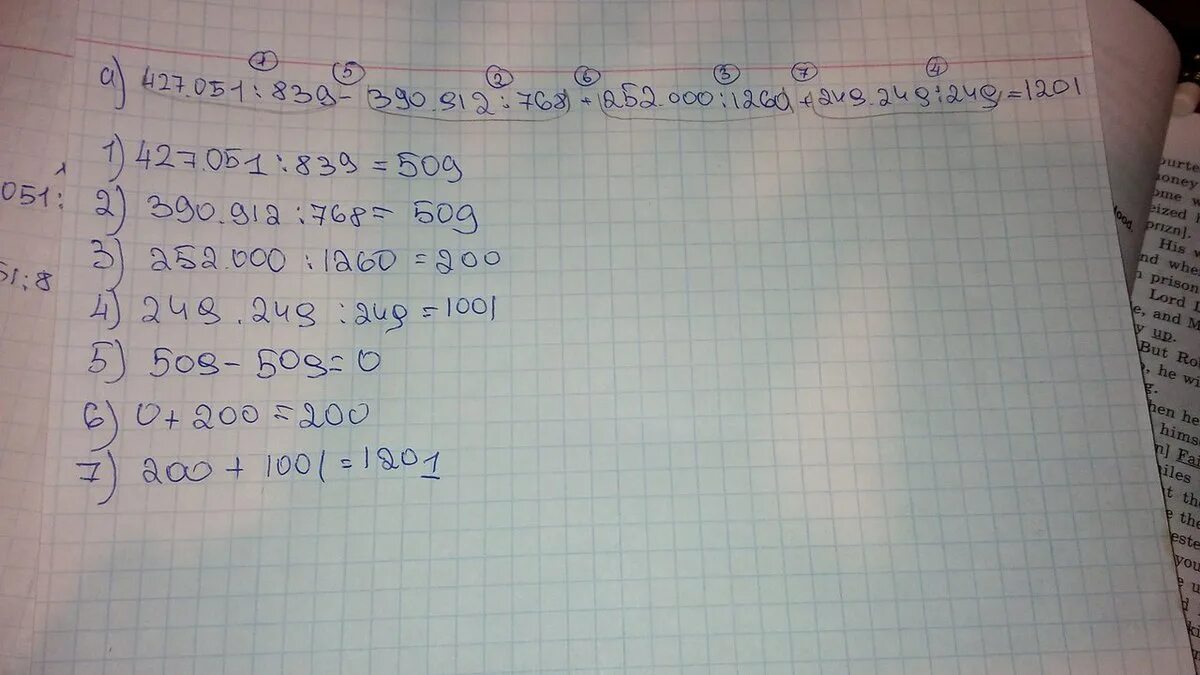 ① ⑤ ② ⑥ ③ ⑦ ④
а) 427.051 : 839 - 390.912 : 768 + 252.000 : 1260 + 249.249 : 249 = 1201
1) 427.051 : 839 = 509
2) 390.912 : 768 = 509
3) 252.000 : 1260 = 200
4) 249.249 : 249 = 1001
5) 509 - 509 = 0
6) 0 + 200 = 200
7) 200 + 1001 = 1201
051 :
51 : 8
ourte
oney
ome w
eized
prizn].
His w
nd whe
prison
Lord
e, and M
y up.
But Ro
, he wi
g.
hen he
hims
n] Fai
iles
t th
e the
este
you
e u
lood